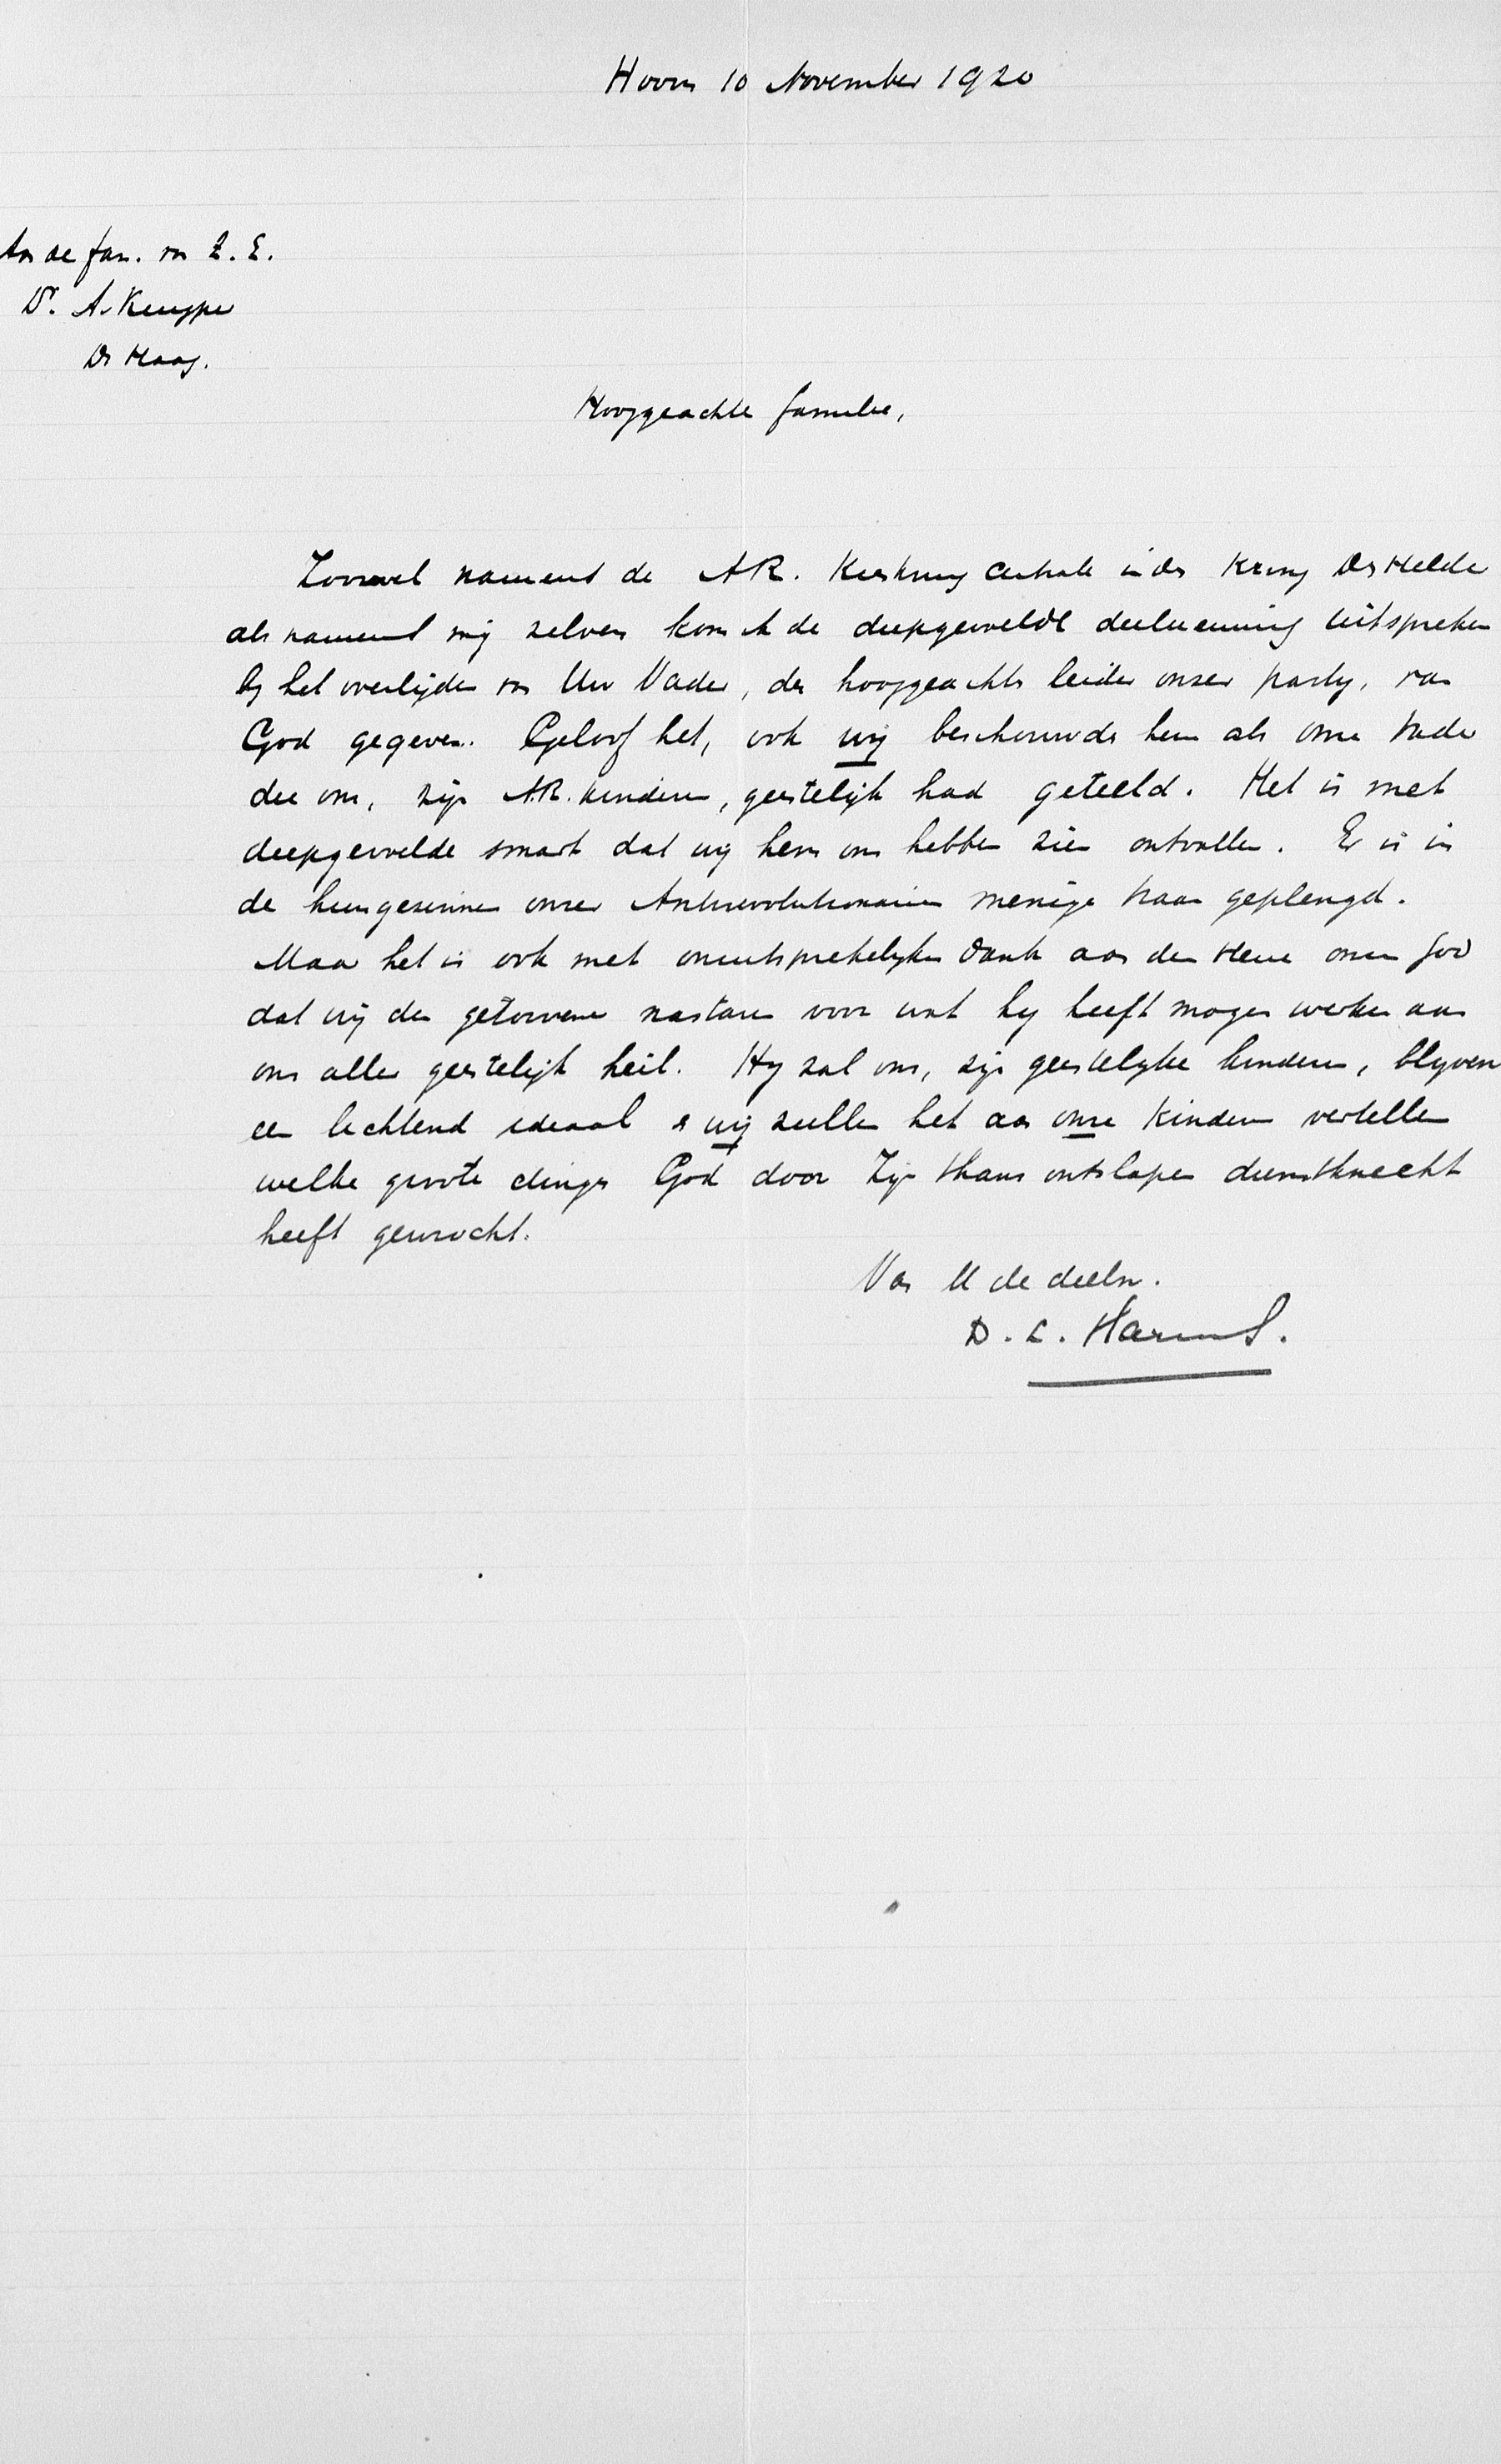 Hoorn 10 November 1920
Aan de fam. van Z. E.
Dr. A. Kuyper
Den Haag.
Hooggeachte familie,
Zoowel namens de A.R. Kieskring Centrale in den Kring Den Helder
als namens mij zelven kom ik de diepgevoelde deelneming uitspreken
bij het overlijden van Uw Vader, den hooggeachten leider onzer partij, van
God gegeven. Geloof het, ook wij beschouwden hem als onze Vader
die ons, zijn A.R. kinderen, geestelijk had geteeld. Het is met
diepgevoelde smart dat wij hem ons hebben zien ontvallen. Er is in
de huisgezinnen onzer Antirevolutionairen menige traan geplengd.
Maar het is ook met onuitsprekelijken dank aan den Heere onzen God
dat wij den nastaren voor wat hij heeft mogen werken aan
ons aller geestelijk heil. Hij zal ons, zijn geestelijke kinderen, blijven
een lichtend ideaal & wij zullen het aan onze Kinderen vertellen
welke groote dingen God door Zijn thans ontslapen dienstknecht
heeft gewrocht.
Van U de deeln.
D. L. Harms.